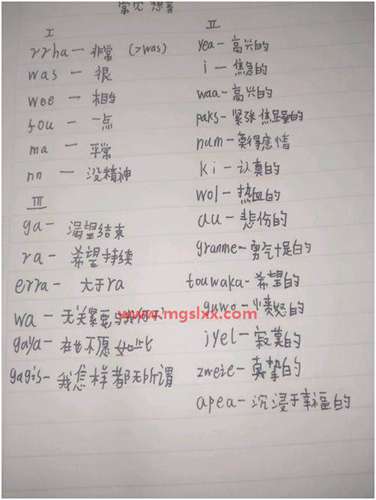 常见想音
I
rrha — 非常 (>was)
was — 很
wee — 相当
fou — 一点
ma — 平常
nn — 没精神
III
ga — 渴望结束
ra — 希望持续
erra — 大于ra
wa — 无关紧要
gaya — 在也不愿如此
gagis — 我怎样都无所谓
II
yea — 高兴的
i — 焦急的
waa — 高兴的
paks — 紧张焦虑的
num — 莫得感情
ki — 认真的
wol — 热血的
au — 悲伤的
granme — 勇气十足的
touwaka — 希望的
guwo — 愤怒的
jyel — 寂寞的
zweie — 真挚的
apea — 沉浸于幸福的
www.mgslxx.com